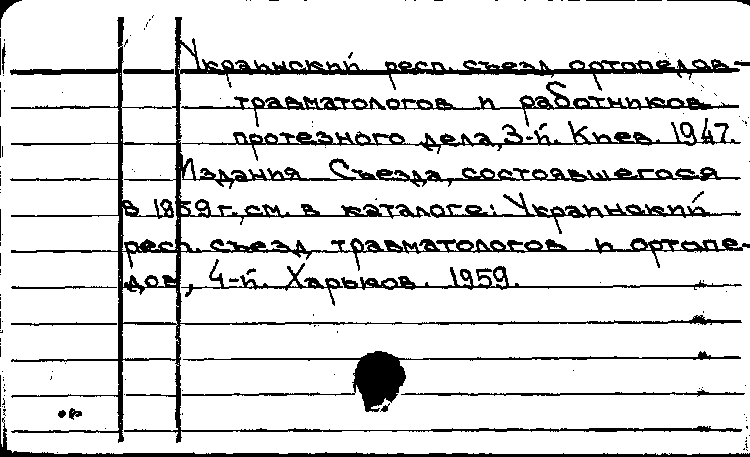 Украинский респ. съезд ортопедов-
травматологов и работников
протезного дела, 3-й. Киев. 1947.
Издания Съезда, состоявшегося
в 1859 г., см. в каталоге: Украинский
респ. съезд травматологов и ортопе-
дов, 4-й. Харьков. 1959.